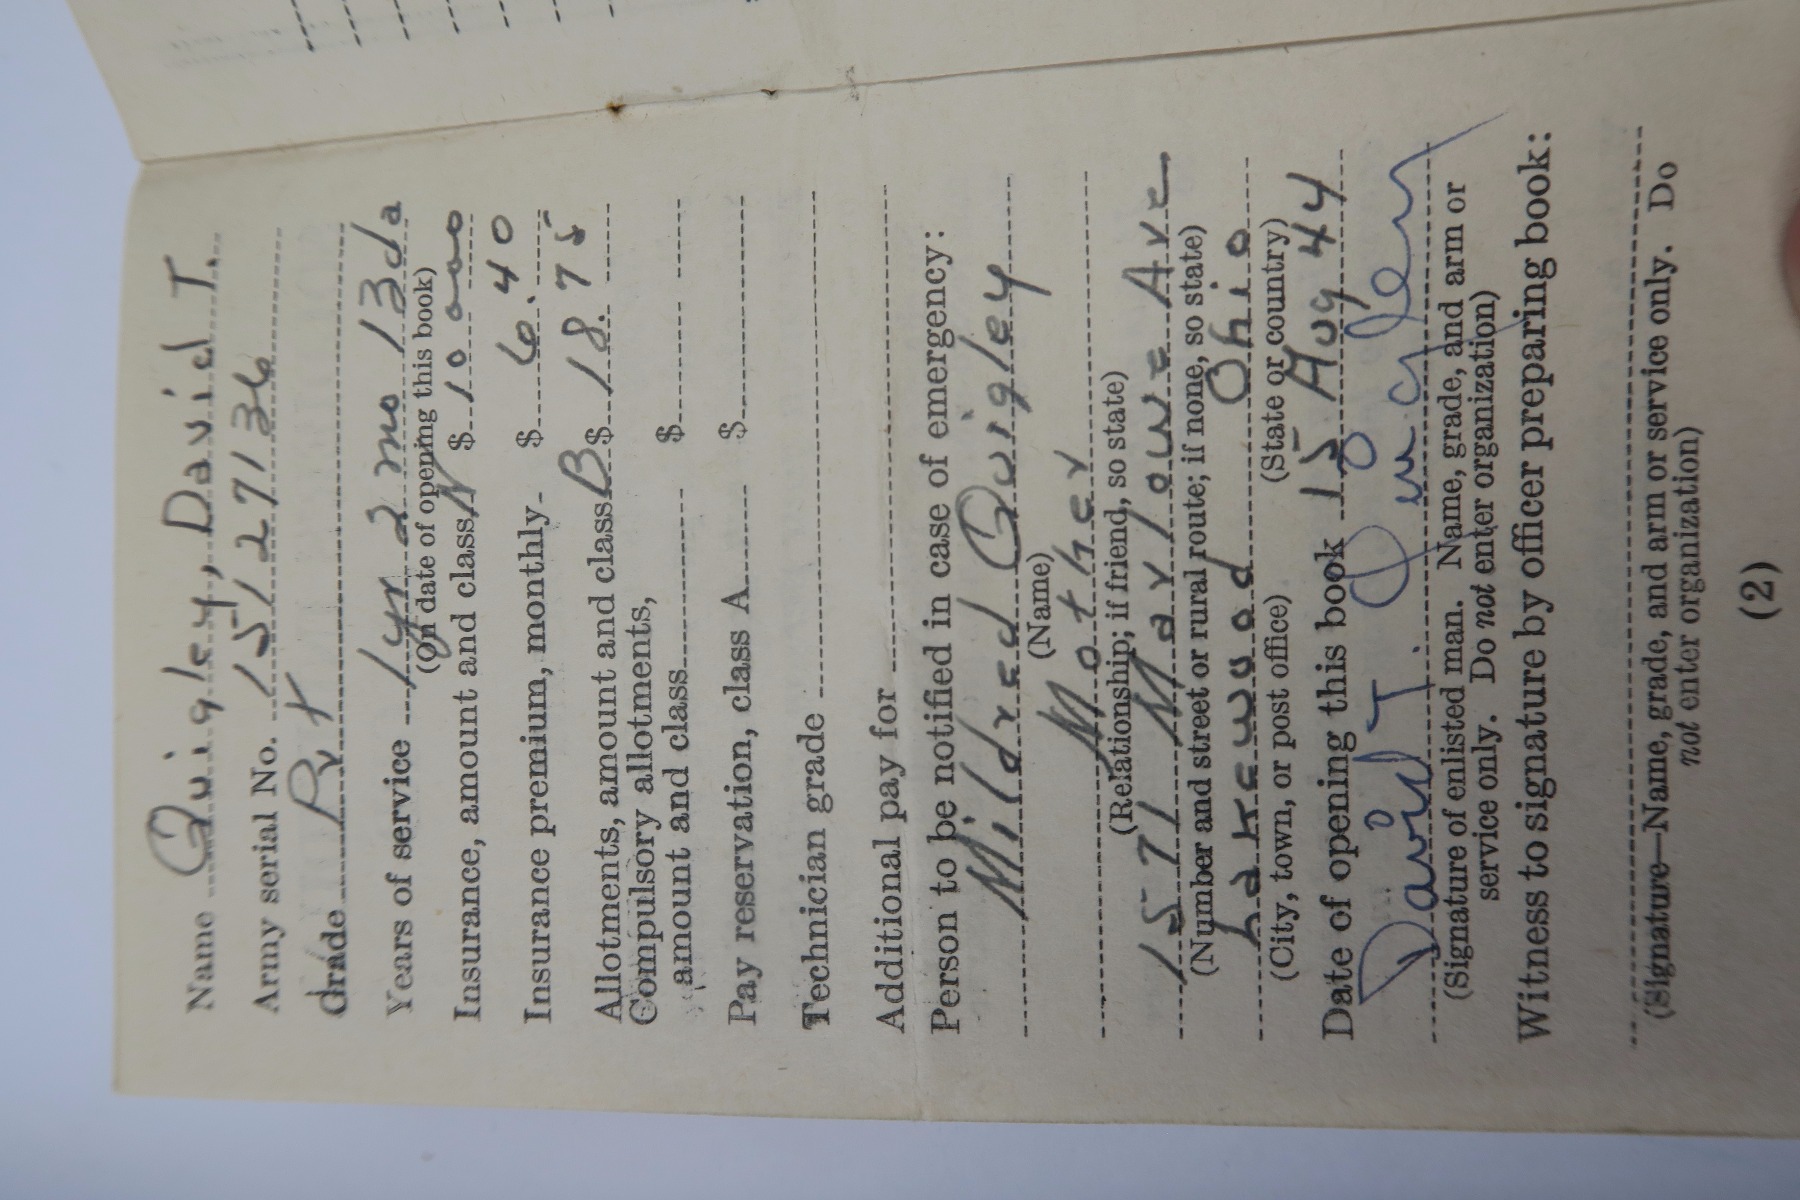 Name Quigley, David T.
Army serial No. 15127136
Grade Pvt
Years of service 1 yr 2 mo 13 da
(On date of opening this book)
Insurance, amount and class N $ 10 000
Insurance premium, monthly $ 6.40
Allotments, amount and class B $ 18.75
Compulsory allotments,
amount and class $
Pay reservation, class A $
Technician grade
Additional pay for
Person to be notified in case of emergency:
Mildred Quigley
(Name)
Mother
(Relationship; if friend, so state)
1571 Marlowe Ave
(Number and street or rural route; if none, so state)
Lakewood Ohio
(City, town, or post office) (State or country)
Date of opening this book 15 Aug 44
David T. Quigley
(Signature of enlisted man. Name, grade, and arm or
service only. Do not enter organization)
Witness to signature by officer preparing book:
(Signature—Name, grade, and arm or service only. Do
not enter organization)
(2)